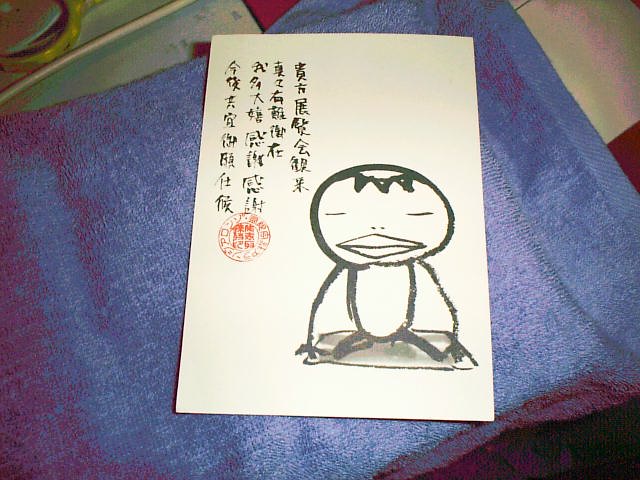 貴方展覧会観来
真々有難御在
我多大嬉感謝感謝
今後共宜御願仕候